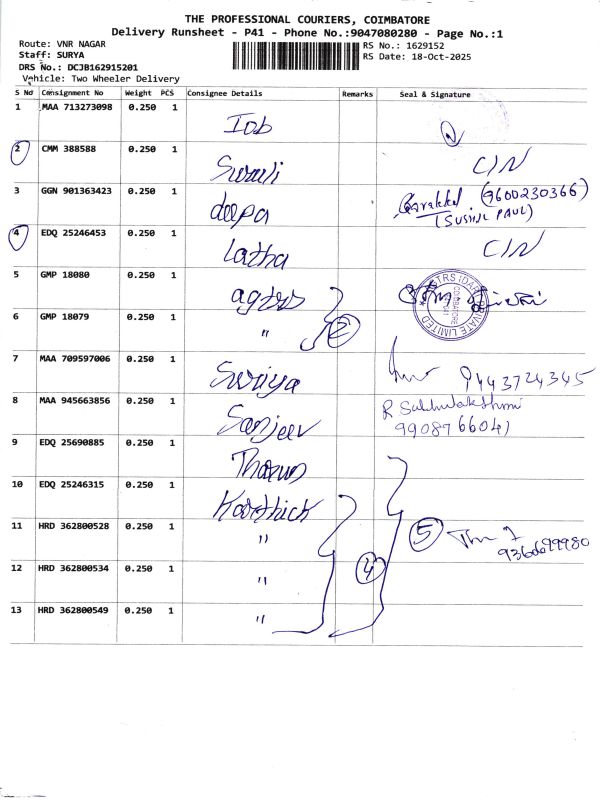 THE PROFESSIONAL COURIERS, COIMBATORE
Delivery Runsheet - P41 - Phone No.:9047080280 - Page No.:1
Route: VNR NAGAR
Staff: SURYA
DRS No.: DCJB162915201
Vehicle: Two Wheeler Delivery
RS No.: 1629152
RS Date: 18-Oct-2025
S No Consignment No Weight PCS Consignee Details Remarks Seal & Signature
1 MAA 713273098 0.250 1 Iob
2 CMM 388588 0.250 1 C/N
3 GGN 901363423 0.250 1 deepa (9600230366)
(SUSHIL PAUL)
4 EDQ 25246453 0.250 1 Latha C/N
5 GMP 18080 0.250 1
6 GMP 18079 0.250 1 " 2
7 MAA 709597006 0.250 1 Suriya 9443724345
8 MAA 945663856 0.250 1 Sanjeev R
9908766041
9 EDQ 25690885 0.250 1 Tharun
10 EDQ 25246315 0.250 1 Karthick
11 HRD 362800528 0.250 1 " 5
12 HRD 362800534 0.250 1 " 4
13 HRD 362800549 0.250 1 "